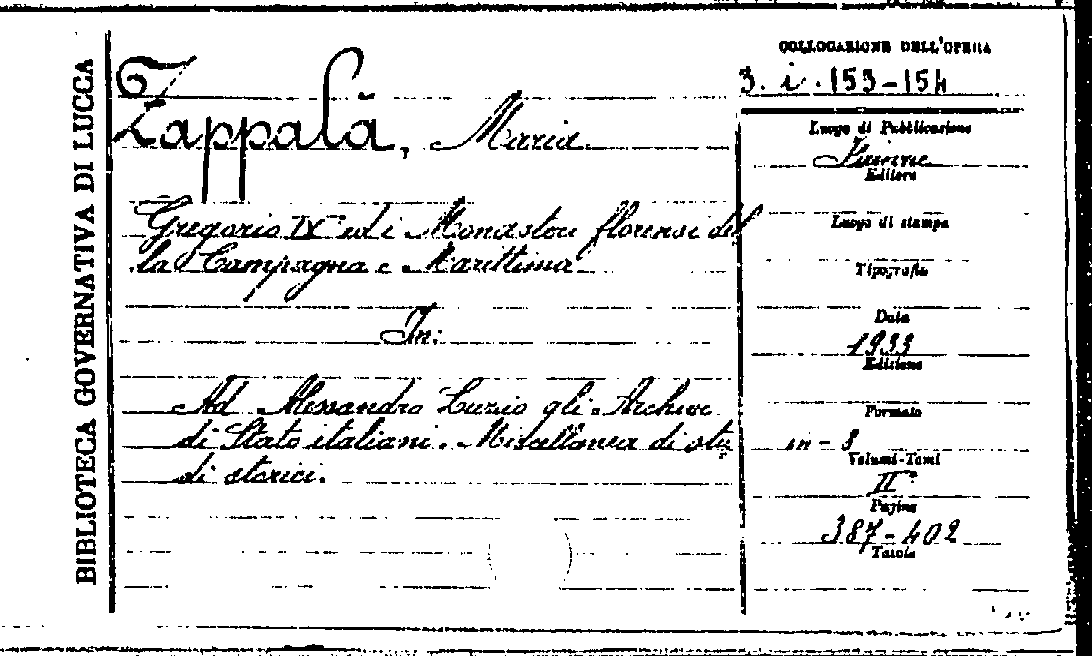 BIBLIOTECA GOVERNATIVA DI LUCCA
Zappalà, Maria
Gregorio IX ed i Monasteri florensi del
la Campagna e Marittima
In:
Ad Alessandro Luzio gli Archivi
di Stato italiani. Miscellanea di stu
di storici.
COLLOCAZIONE DELL'OPERA
3. i. 153-154
Luogo di Pubblicazione
Firenze
Editore
Luogo di stampa
Tipografia
Data
1933
Edizione
Formato
in-8
Volumi-Tomi
II°
Pagine
387-402
Tavole